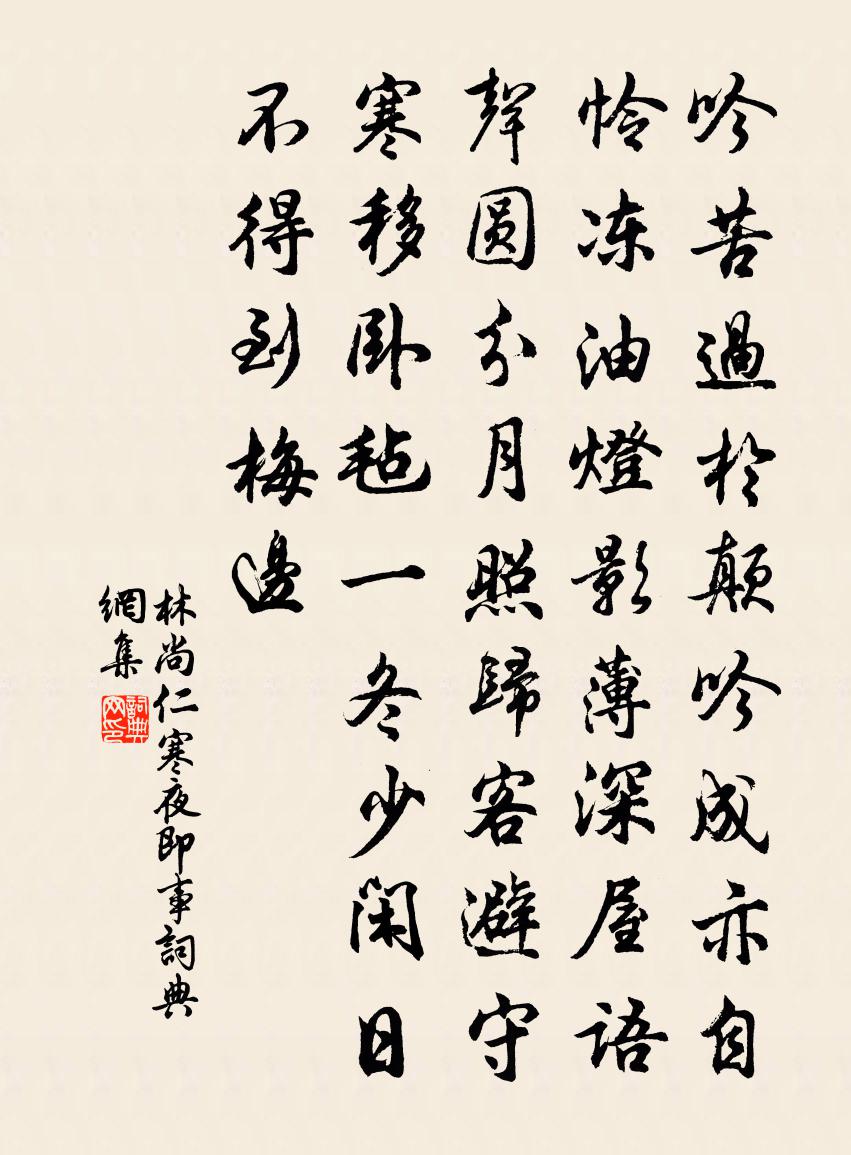 吟苦過於顛吟成亦自
怜冻油燈影薄深屋语
聲圓分月照歸客避守
寒移卧毡一冬少闲日
不得到梅邊
林尚仁寒夜即事詞典
網集
詞典
网印